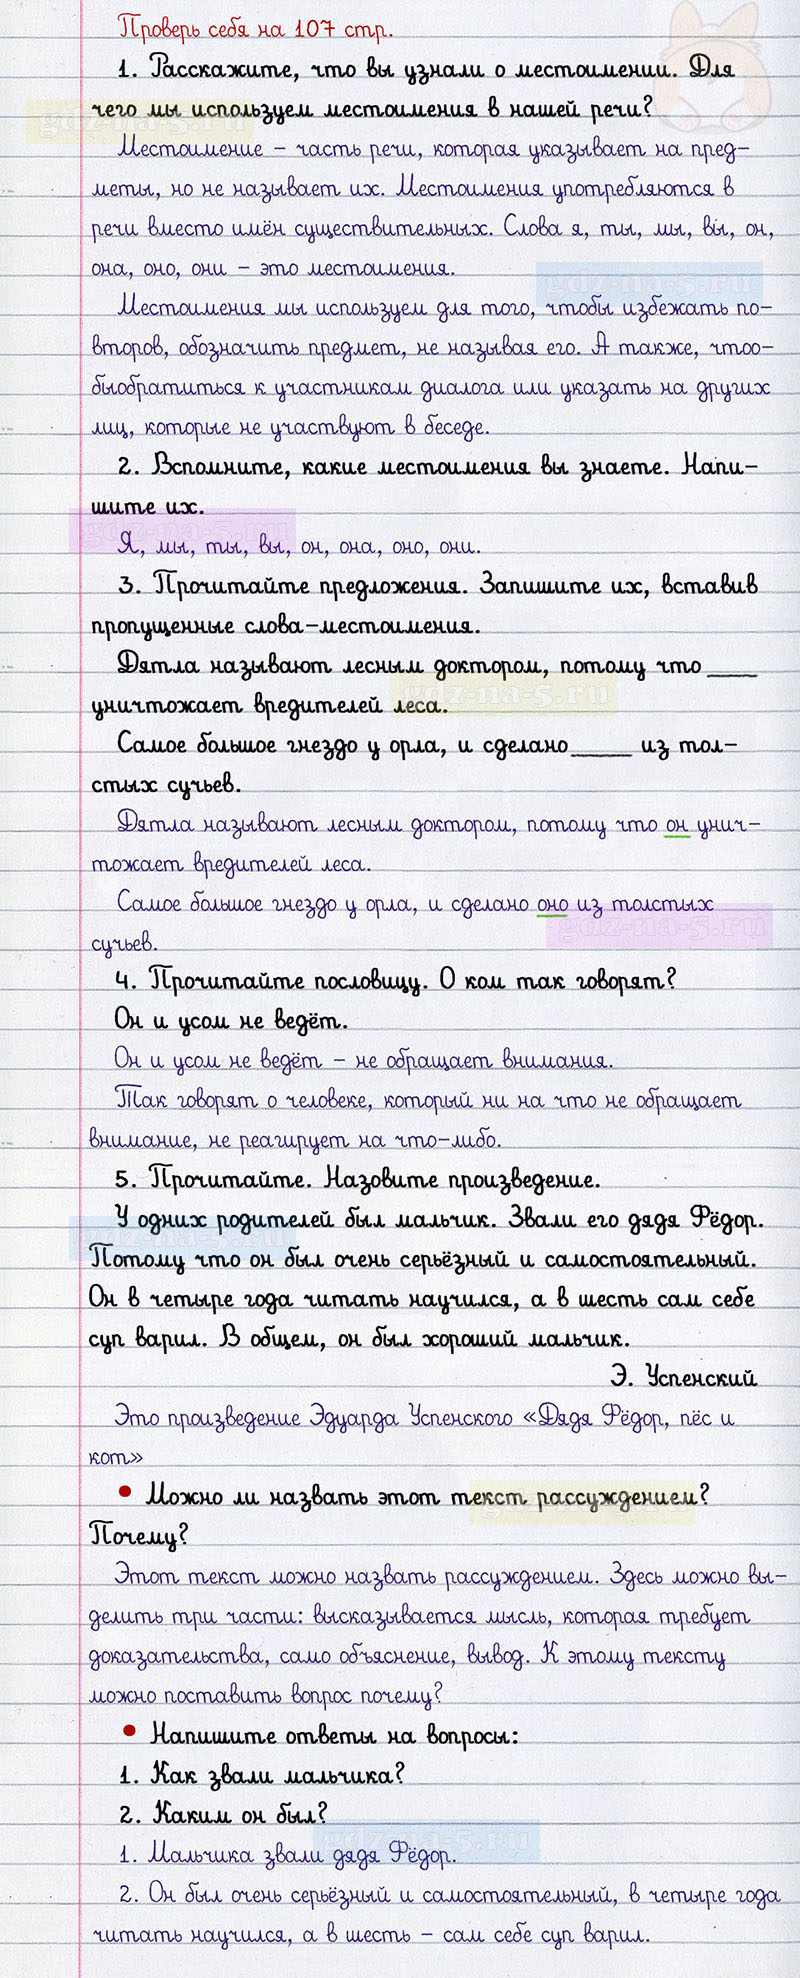 Проверь себя на 107 стр.
1. Расскажите, что вы узнали о местоимении. Для
чего мы используем местоимения в нашей речи?
gdz-na-5.ru
Местоимение – часть речи, которая указывает на пред-
меты, но не называет их. Местоимения употребляются в
речи вместо имён существительных. Слова я, ты, мы, вы, он,
она, оно, они – это местоимения.
gdz-na-5.ru
Местоимения мы используем для того, чтобы избежать по-
второв, обозначить предмет, не называя его. А также, чтоо-
быобратиться к участникам диалога или указать на других
лиц, которые не участвуют в беседе.
2. Вспомните, какие местоимения вы знаете. Напи-
шите их.
gdz-na-5.ru
Я, мы, ты, вы, он, она, оно, они.
3. Прочитайте предложения. Запишите их, вставив
пропущенные слова-местоимения.
Дятла называют лесным доктором, потому что ____
gdz-na-5.ru
уничтожает вредителей леса.
Самое большое гнездо у орла, и сделано _____ из тол-
стых сучьев.
Дятла называют лесным доктором, потому что он унич-
тожает вредителей леса.
Самое большое гнездо у орла, и сделано оно из толстых
gdz-na-5.ru
сучьев.
4. Прочитайте пословицу. О ком так говорят?
Он и усом не ведёт.
Он и усом не ведёт – не обращает внимания.
Так говорят о человеке, который ни на что не обращает
внимание, не реагирует на что-либо.
5. Прочитайте. Назовите произведение.
У одних родителей был мальчик. Звали его дядя Фёдор.
gdz-na-5.ru
Потому что он был очень серьёзный и самостоятельный.
Он в четыре года читать научился, а в шесть сам себе
суп варил. В общем, он был хороший мальчик.
Э. Успенский
Это произведение Эдуарда Успенского «Дядя Фёдор, пёс и
кот»
• Можно ли назвать этот текст рассуждением?
gdz-na-5.ru
Почему?
Этот текст можно назвать рассуждением. Здесь можно вы-
делить три части: высказывается мысль, которая требует
доказательства, само объяснение, вывод. К этому тексту
можно поставить вопрос почему?
• Напишите ответы на вопросы:
1. Как звали мальчика?
2. Каким он был?
gdz-na-5.ru
1. Мальчика звали дядя Фёдор.
2. Он был очень серьёзный и самостоятельный, в четыре года
читать научился, а в шесть – сам себе суп варил.